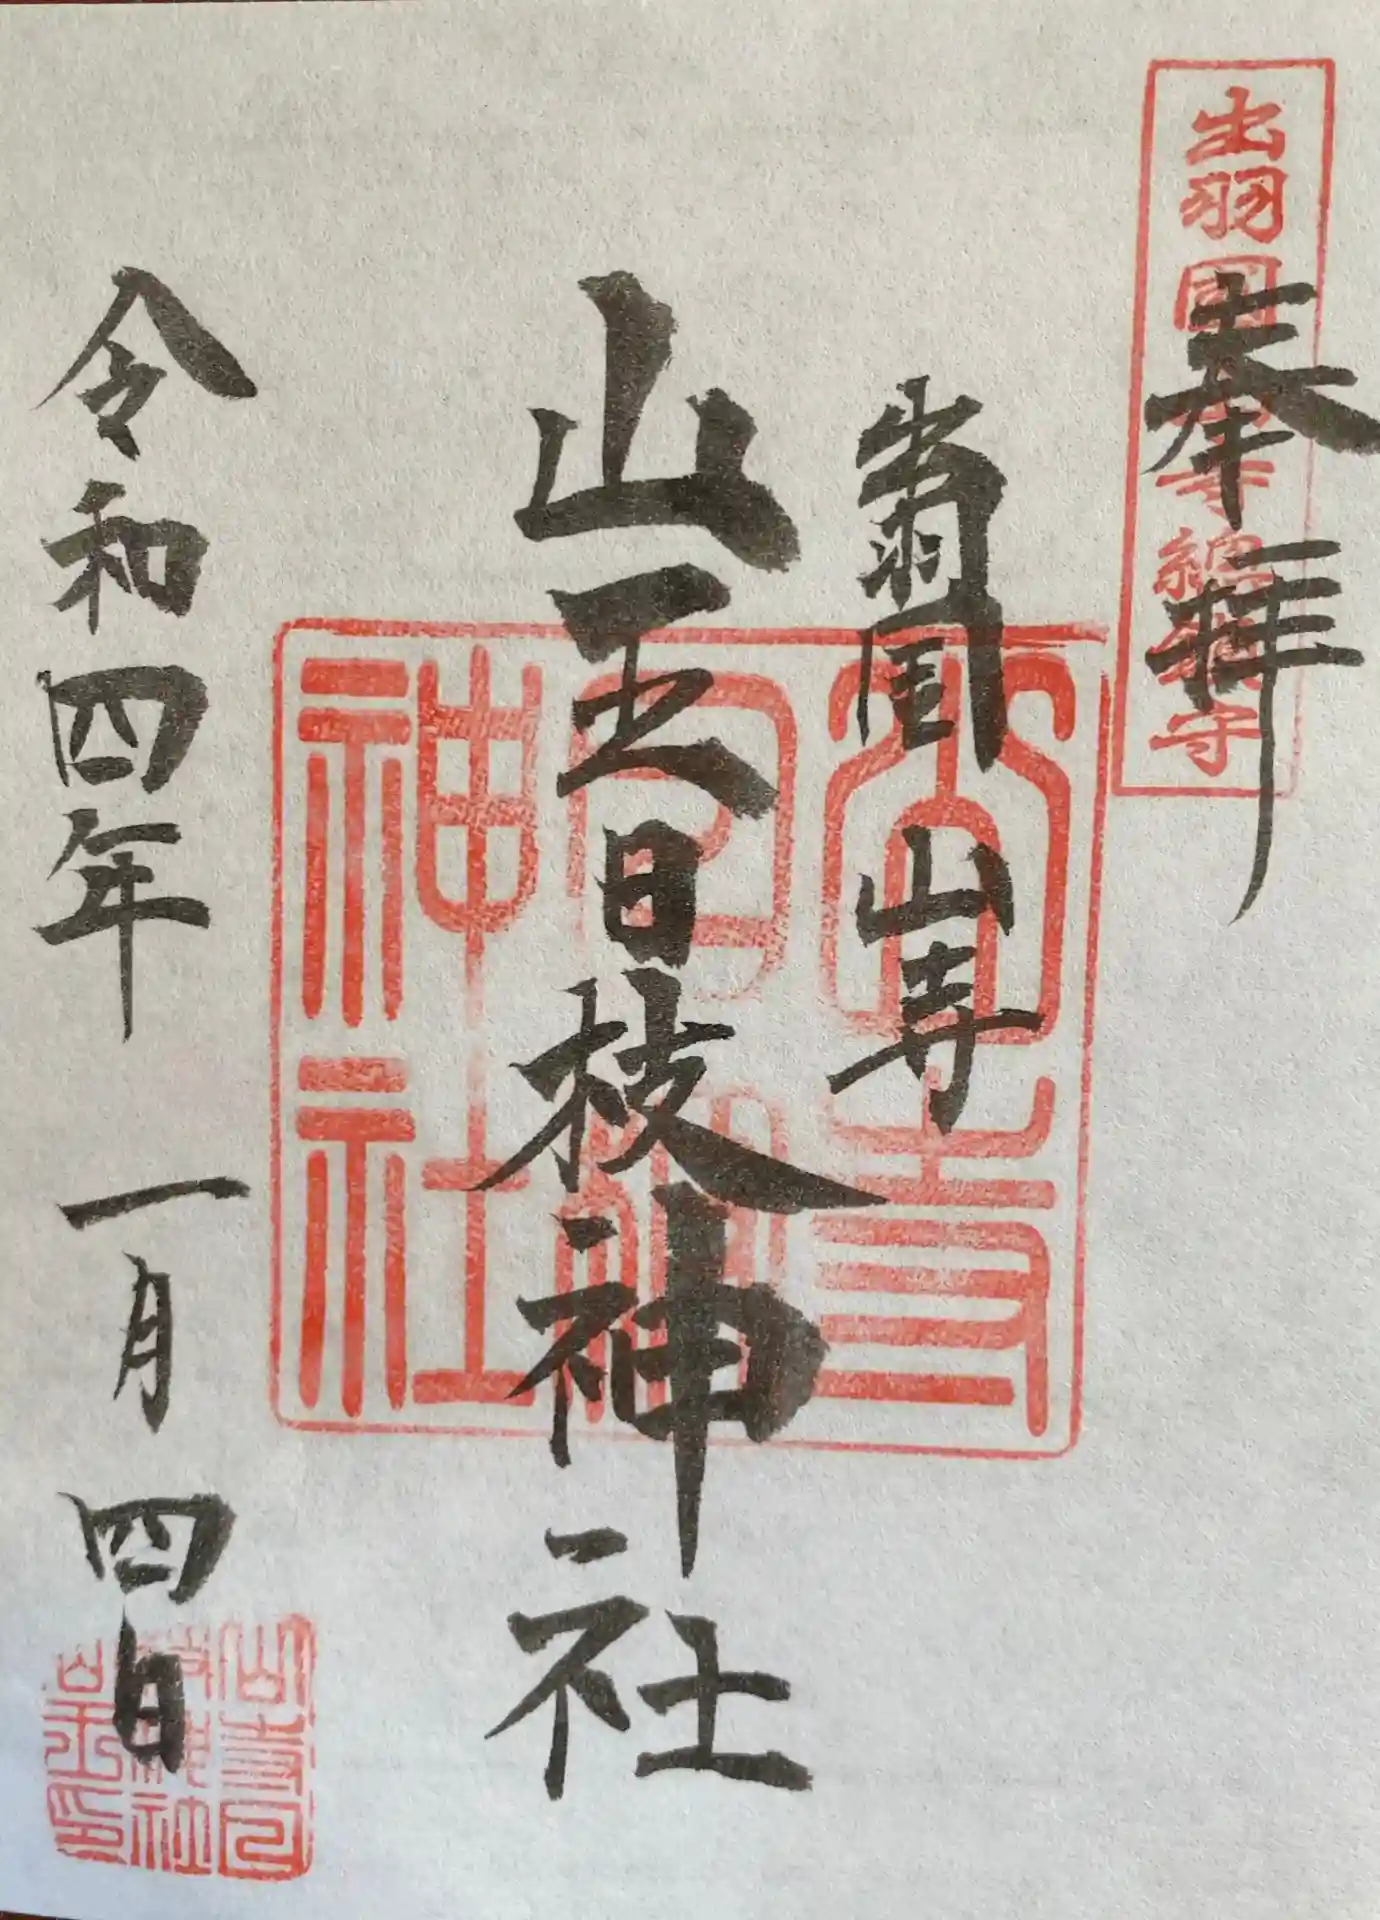 出羽國山寺總鎮守
奉拝
出羽国 山寺
山王日枝神社
山寺
日枝
神社
令和四年 一月 四日
山寺日
枝神社
山王印